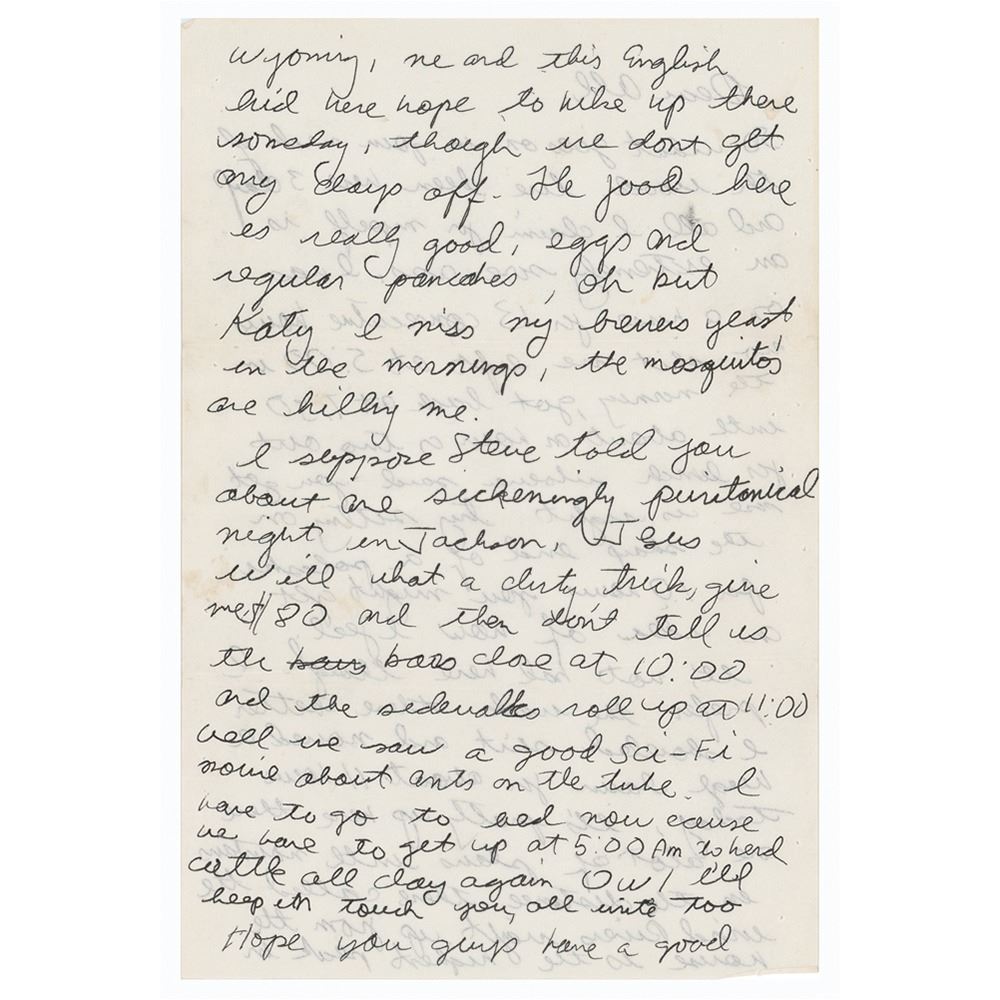 Wyoming, me and this English
kid here hope to hike up there
someday, though we dont get
any days off. The food here
is really good, eggs and
regular pancakes, oh but
Katy I miss my brewers yeast
in the mornings, the mosquito's
are killing me.
I suppose Steve told you
about are sickeningly puritanical
night in Jackson, Jesus
Will what a dirty trick, give
me $80 and then don't tell us
the bars bars close at 10:00
and the sidewalks roll up at 11:00
well we saw a good Sci-Fi
movie about ants on the tube. I
have to go to bed now cause
we have to get up at 5:00 Am to herd
cattle all day again Ow! I'll
keep in touch you, all write too
Hope you guys have a good